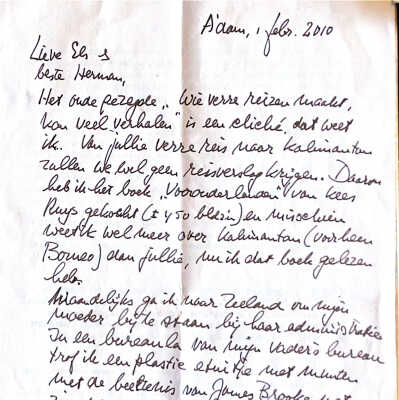 A'dam, 1 febr. 2010
Lieve Els &
beste Herman,
Het oude gezegde „Wie verre reizen maakt,
kan veel verhalen" is een cliché, dat weet
ik. Van jullie verre reis naar Kalimantan
zullen we wel geen reisverslag krijgen. Daarom
heb ik het boek „Vooronderlanden" van Kees
Ruys gekocht (± 450 bldzn) en misschien
weet ik wel meer over Kalimantan (voorheen
Borneo) dan jullie, nu ik dat boek gelezen
heb.
Maandelijks ga ik naar Zeeland om mijn
moeder bij te staan bij haar administratie
In een bureaula van mijn vaders bureau
trof ik een plastic etuitje met munten
met de beeltenis van James Brooke met